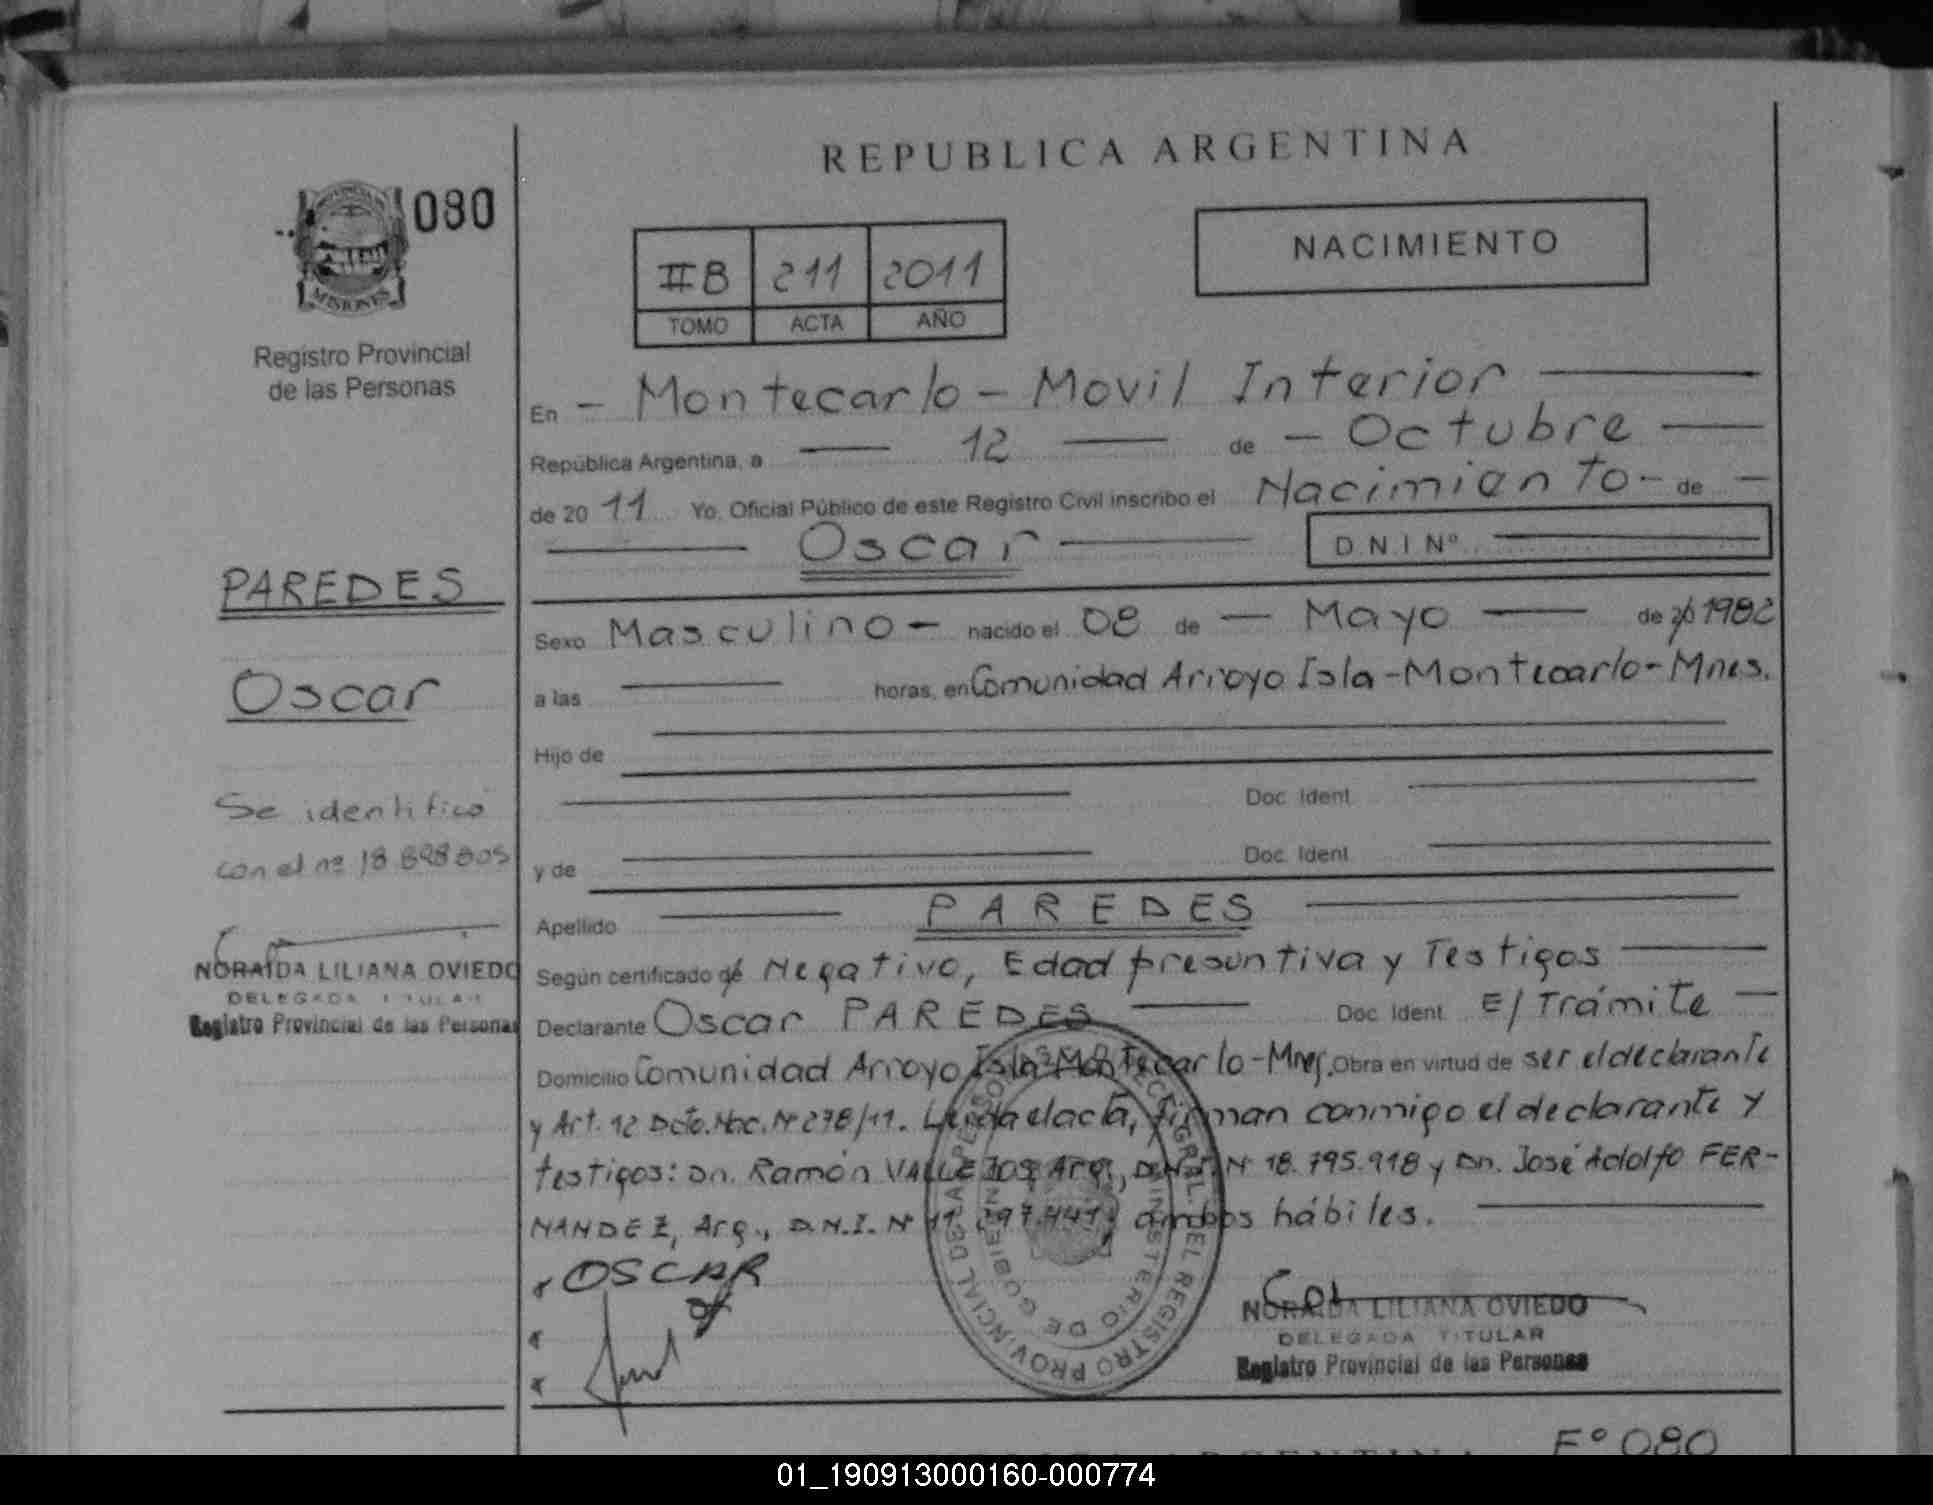 REPUBLICA ARGENTINA
080
MISIONES
Registro Provincial
de las Personas
IIB 211 2011
TOMO ACTA AÑO
NACIMIENTO
En - Montecarlo - Movil Interior
República Argentina, a 12 de - Octubre
de 2011 Yo, Oficial Público de este Registro Civil inscribo el Nacimiento - de
Oscar
D.N.I Nº
PAREDES
Oscar
Se identifico
con el nº
NORAIDA LILIANA OVIEDO
DELEGADA TITULAR
Registro Provincial de las Personas
Sexo Masculino - nacido el 08 de - Mayo de 20 1982
a las horas, en Comunidad Arroyo Isla - Montecarlo - Mnes.
Hijo de
Doc. Ident.
y de Doc. Ident.
Apellido PAREDES
Según certificado de Negativo, Edad presuntiva y Testigos
Declarante Oscar PAREDES Doc. Ident. E/Trámite
Domicilio Comunidad Arroyo Isla Montecarlo - Mnes. Obra en virtud de ser el declarante
y Art. 12 Dcto. Nac. Nº 278/11. Leida el acta, firman conmigo el declarante y
testigos: Dn. Ramón VALLEJOS, Arg., D.N.I. Nº 18.795.918 y Dn. José Adolfo FER-
NANDEZ, Arg., D.N.I. Nº ambos hábiles.
OSCAR
NORAIDA LILIANA OVIEDO
DELEGADA TITULAR
Registro Provincial de las Personas
Fº 080
01_190913000160-000774